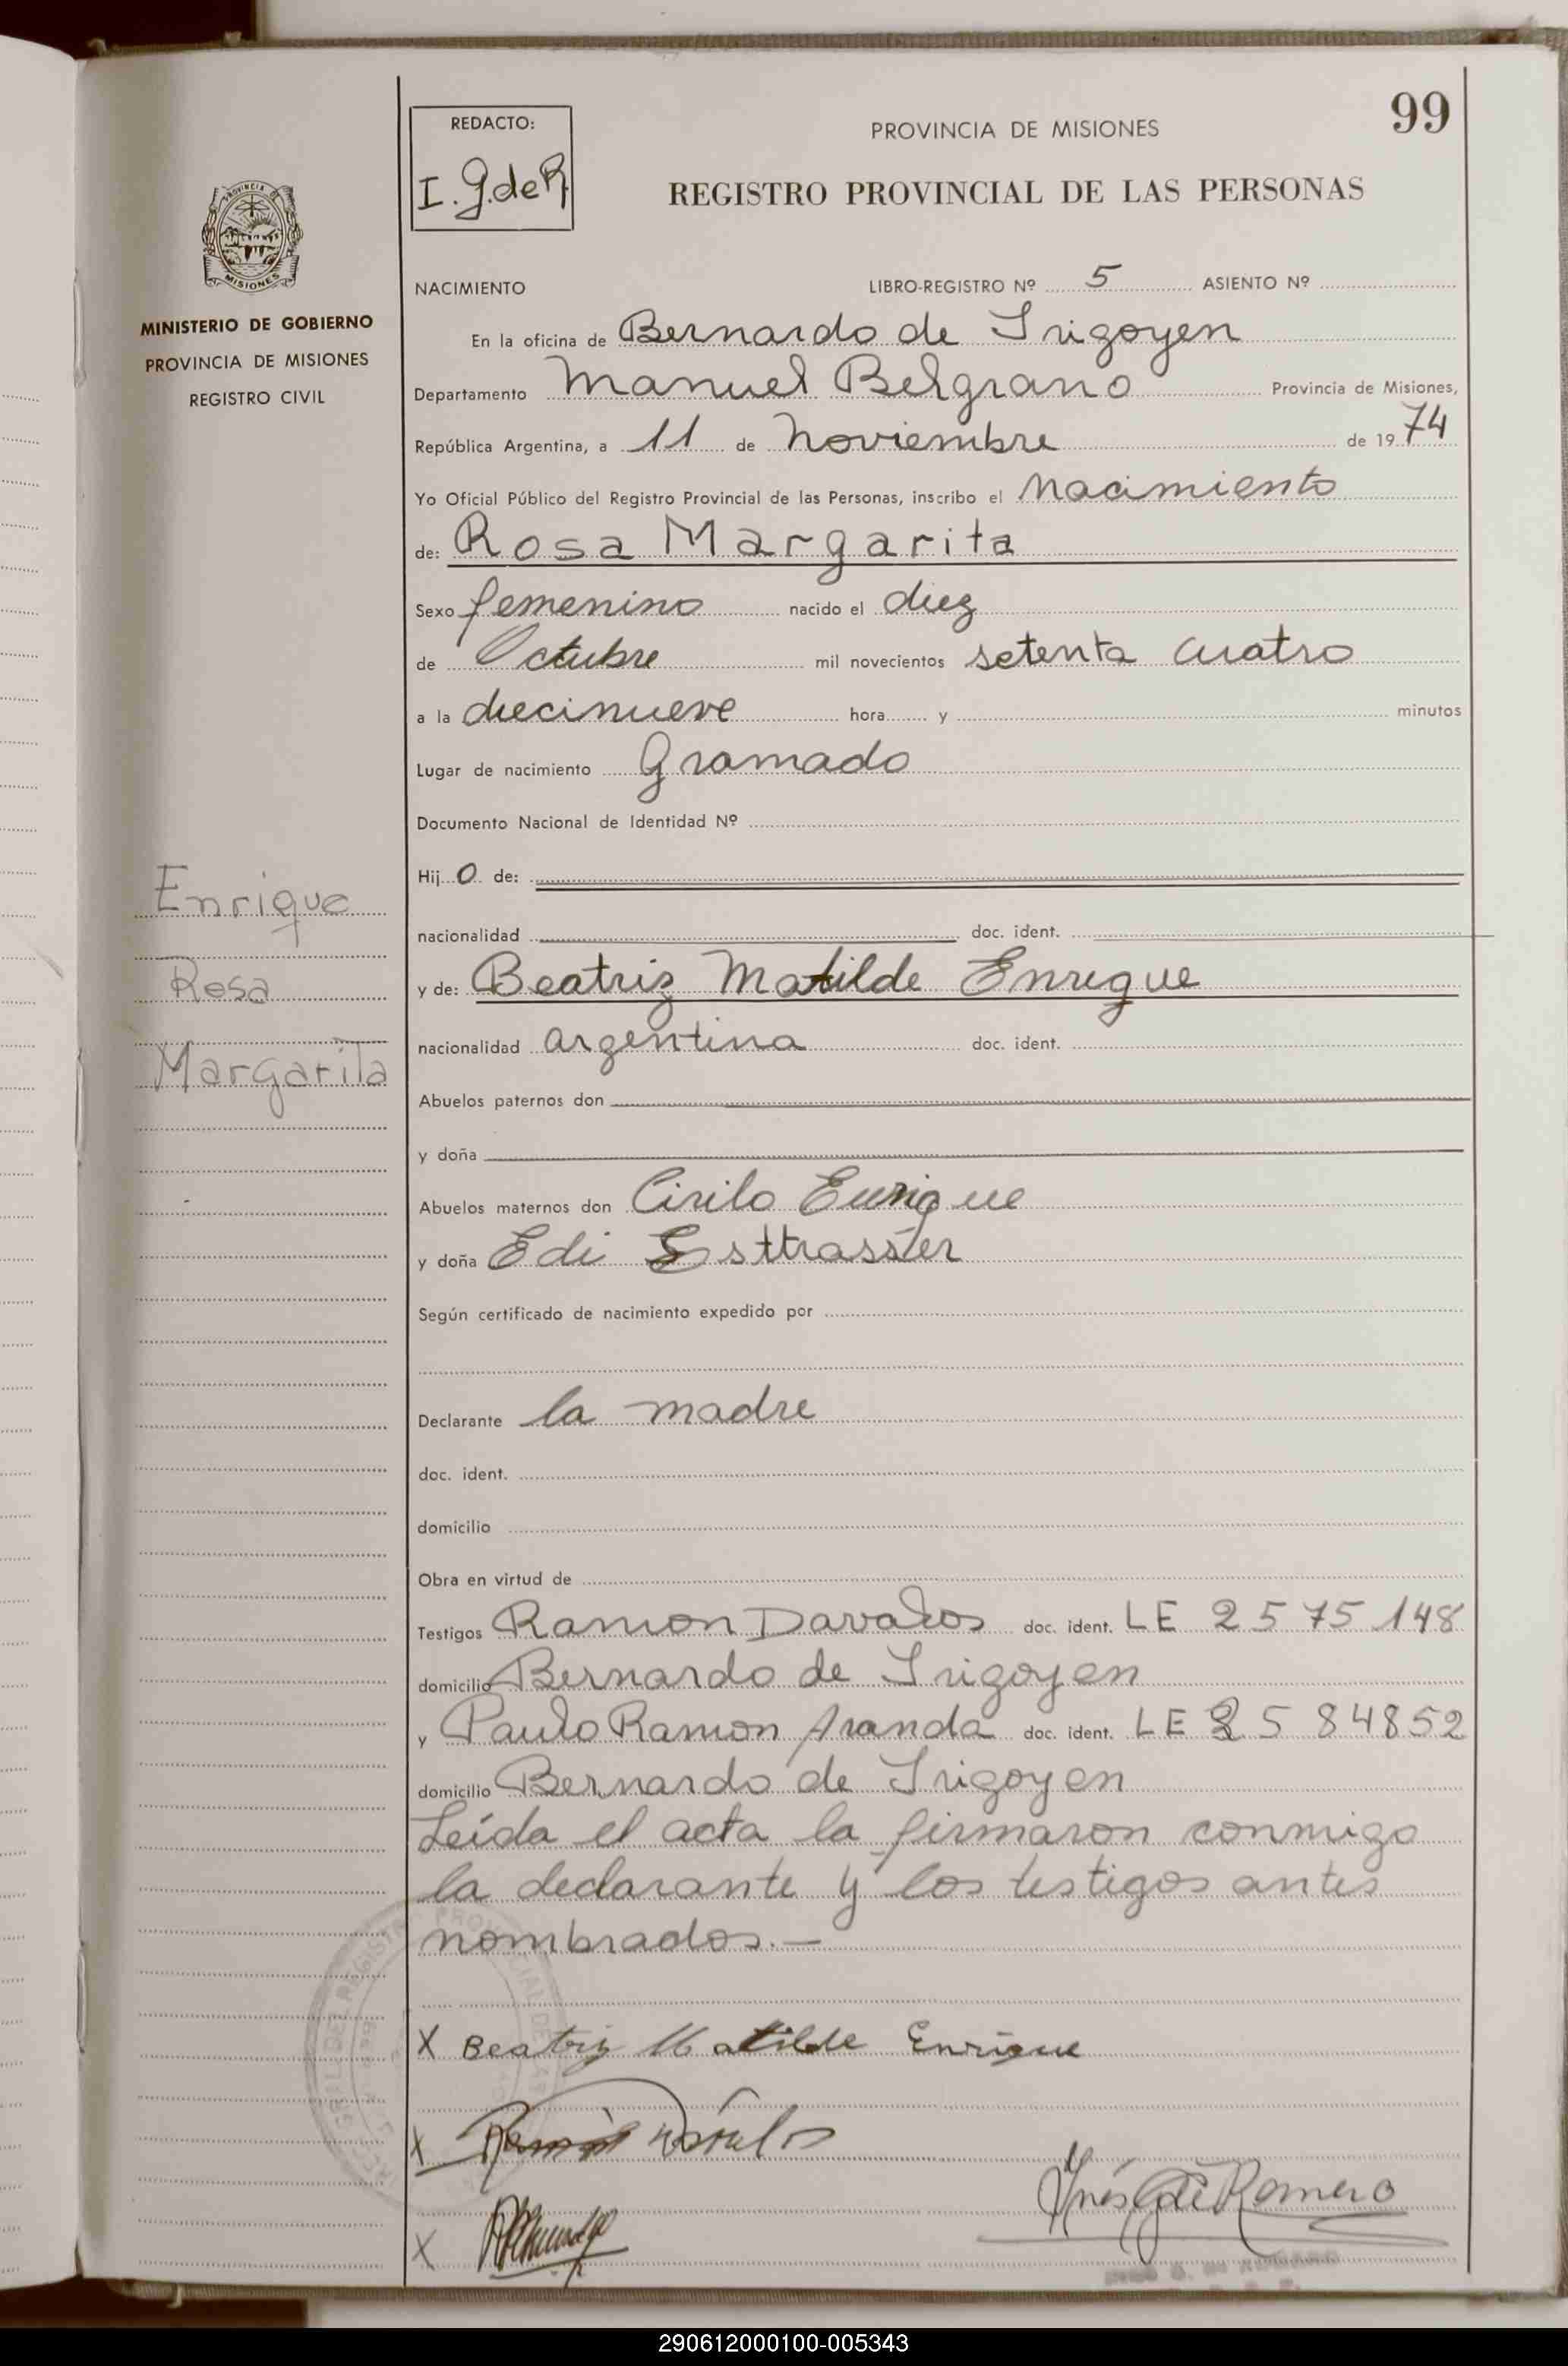 99
REDACTO:
I. G. de R.
PROVINCIA DE MISIONES
REGISTRO PROVINCIAL DE LAS PERSONAS
PROVINCIA DE
MISIONES
MINISTERIO DE GOBIERNO
PROVINCIA DE MISIONES
REGISTRO CIVIL
NACIMIENTO LIBRO-REGISTRO Nº 5 ASIENTO Nº
En la oficina de Bernardo de Irigoyen
Departamento Manuel Belgrano Provincia de Misiones,
República Argentina, a 11 de Noviembre de 1974
Yo Oficial Público del Registro Provincial de las Personas, inscribo el Nacimiento
de: Rosa Margarita
Sexo femenino nacido el diez
de Octubre mil novecientos setenta cuatro
a la diecinueve hora y minutos
Lugar de nacimiento Gramado
Documento Nacional de Identidad Nº
Hij o de:
nacionalidad doc. ident.
y de: Beatriz Matilde Enrique
nacionalidad argentina doc. ident.
Abuelos paternos don
y doña
Abuelos maternos don Cirilo Enrique
y doña Edi Esttrasser
Según certificado de nacimiento expedido por
Declarante la madre
doc. ident.
domicilio
Obra en virtud de
Testigos Ramon Davalos doc. ident. LE 2575148
domicilio Bernardo de Irigoyen
y Paulo Ramon Aranda doc. ident. LE 2584852
domicilio Bernardo de Irigoyen
Leída el acta la firmaron conmigo
la declarante y los testigos antes
nombrados.—
Enrique
Rosa
Margarita
X Beatriz Matilde Enrique
X Ramón Dávalos
Inés G de Romero
X
290612000100-005343